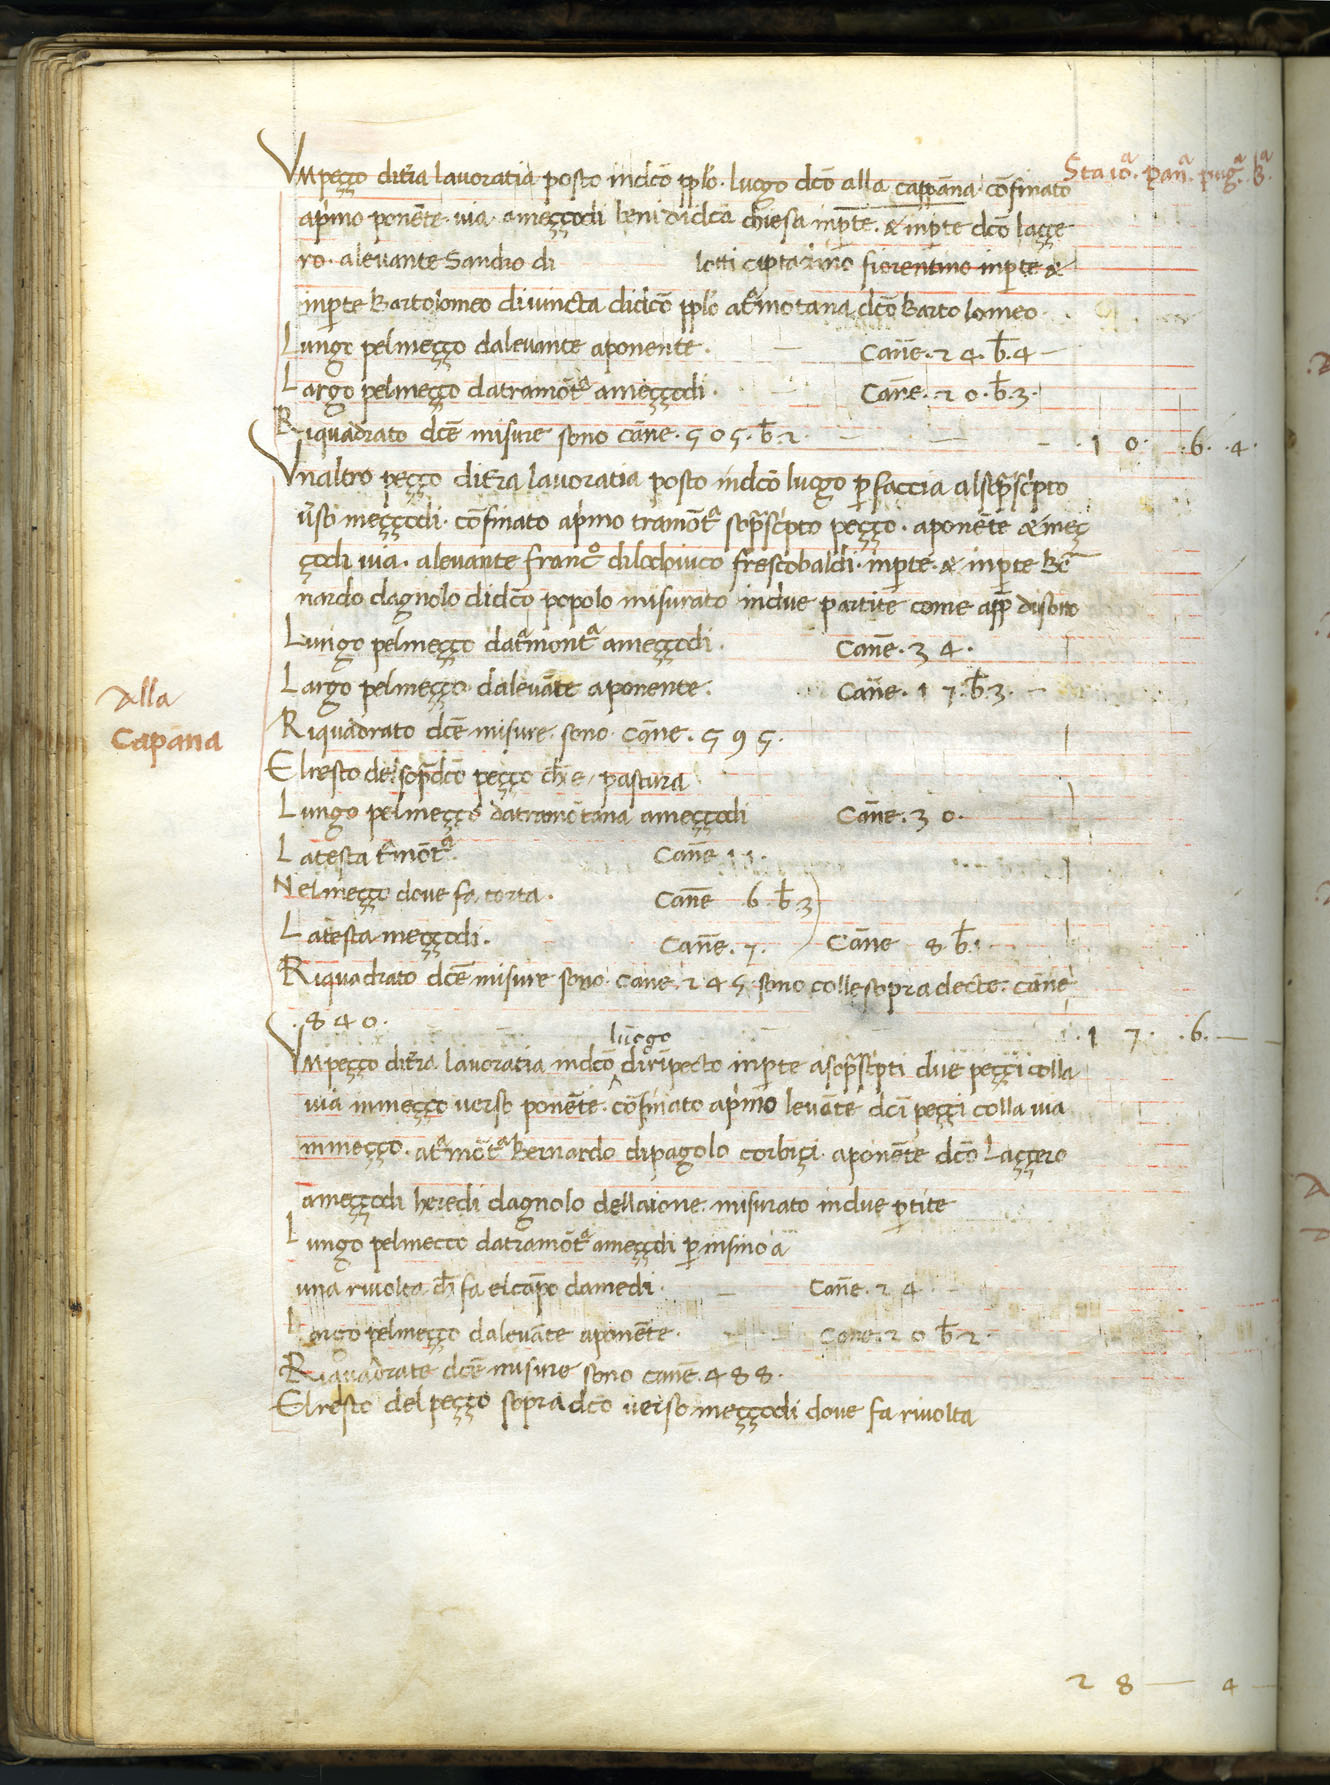 Staioᵃ. panᵃ. pugᵃ. bᵃ.
Vmpeçço diťra lavoratia posto indc̄o pplo. luogo dc̄o alla cappāna. cōfinato
apͥmo ponēte. via. ameççodi beni didc̄a chiesa inp̄te. & inp̄te dc̄o laççe
ro. alevante Sandro di lotti
fiorentino inp̄te &
inp̄te Bartolomeo divincta didc̄o pplo atͣmotana dc̄o Bartolomeo.
Lungo pelmeçço dalevante aponente. Cāne. 24. b̄. 4 —
Largo pelmeçço datramōtᵃ ameççodi. Cāne. 20. b̄. 3.
Riquadrato dc̄e misure sono cāne. 505. b̄. 2. — 10. .6. .4.
Vnaltro peçço diťra lavoratia posto indc̄o luogo p̄ faccia alsop̄scͥpto
v̄so meççodi. cōfinato apͥmo tramōtᵃ sop̄scͥpto peçço. aponēte & meç
çodi via. alevante francᵒ dilodovico frescobaldi. inp̄te. & inp̄te Be͞r
nardo dagnolo didc̄o popolo misurato indue partite come app̄ disotto
Lungo pelmeçço datͣmontᵃ ameççodi. Cāne. 34.
Largo pelmeçço dalevāte aponente. Cāne. 17. b̄. 3. —
Alla
Capāna
Riquadrato dc̄e misure. sono. Cāne. 595.
Elresto del sop̄dc̄o peçço ch̄ e pastura
Lungo pelmeçço datramōtana ameççodi Cāne. 30.
Latesta tͣmōtᵃ. Cāne 11.
Nelmeçço dove fa torta. Cāne 6. b̄. 3)
Latesta meççodi. Cāne. 7. Cāne 8. b̄. 1.
Riquadrato dc̄e misure sono. Cane. 245. sono colle sopradecte. cāne
.840. .17. .6. —
luogo
Vmpeçço diťra lavoratia indc̄o ^ dirīpecto inp̄te a sop̄scͥpti due peççi colla
via inmeçço verso ponēte. cōfinato apͥmo levāte dc̄i peççi colla via
inmeçço. atͣmōtᵃ Bernardo dipagolo corbiçi. aponēte dc̄o Laççero
ameççodi heredi dagnolo dellaione. misurato indue p̄tite
Lungo pelmecco datramōtᵃ ameççodi p̄ insino a
una rivolta ch̄ fa elcāpo damedi. — Cāne. 24
Largo pelmeçço dalevāte aponēte. Cāne. 20 b̄. 2.
Riquadrate dc̄e misure sono cāne. 488.
Elresto del peçço sopradc̄o verso meççodi dove fa rivolta
28 — 4 —